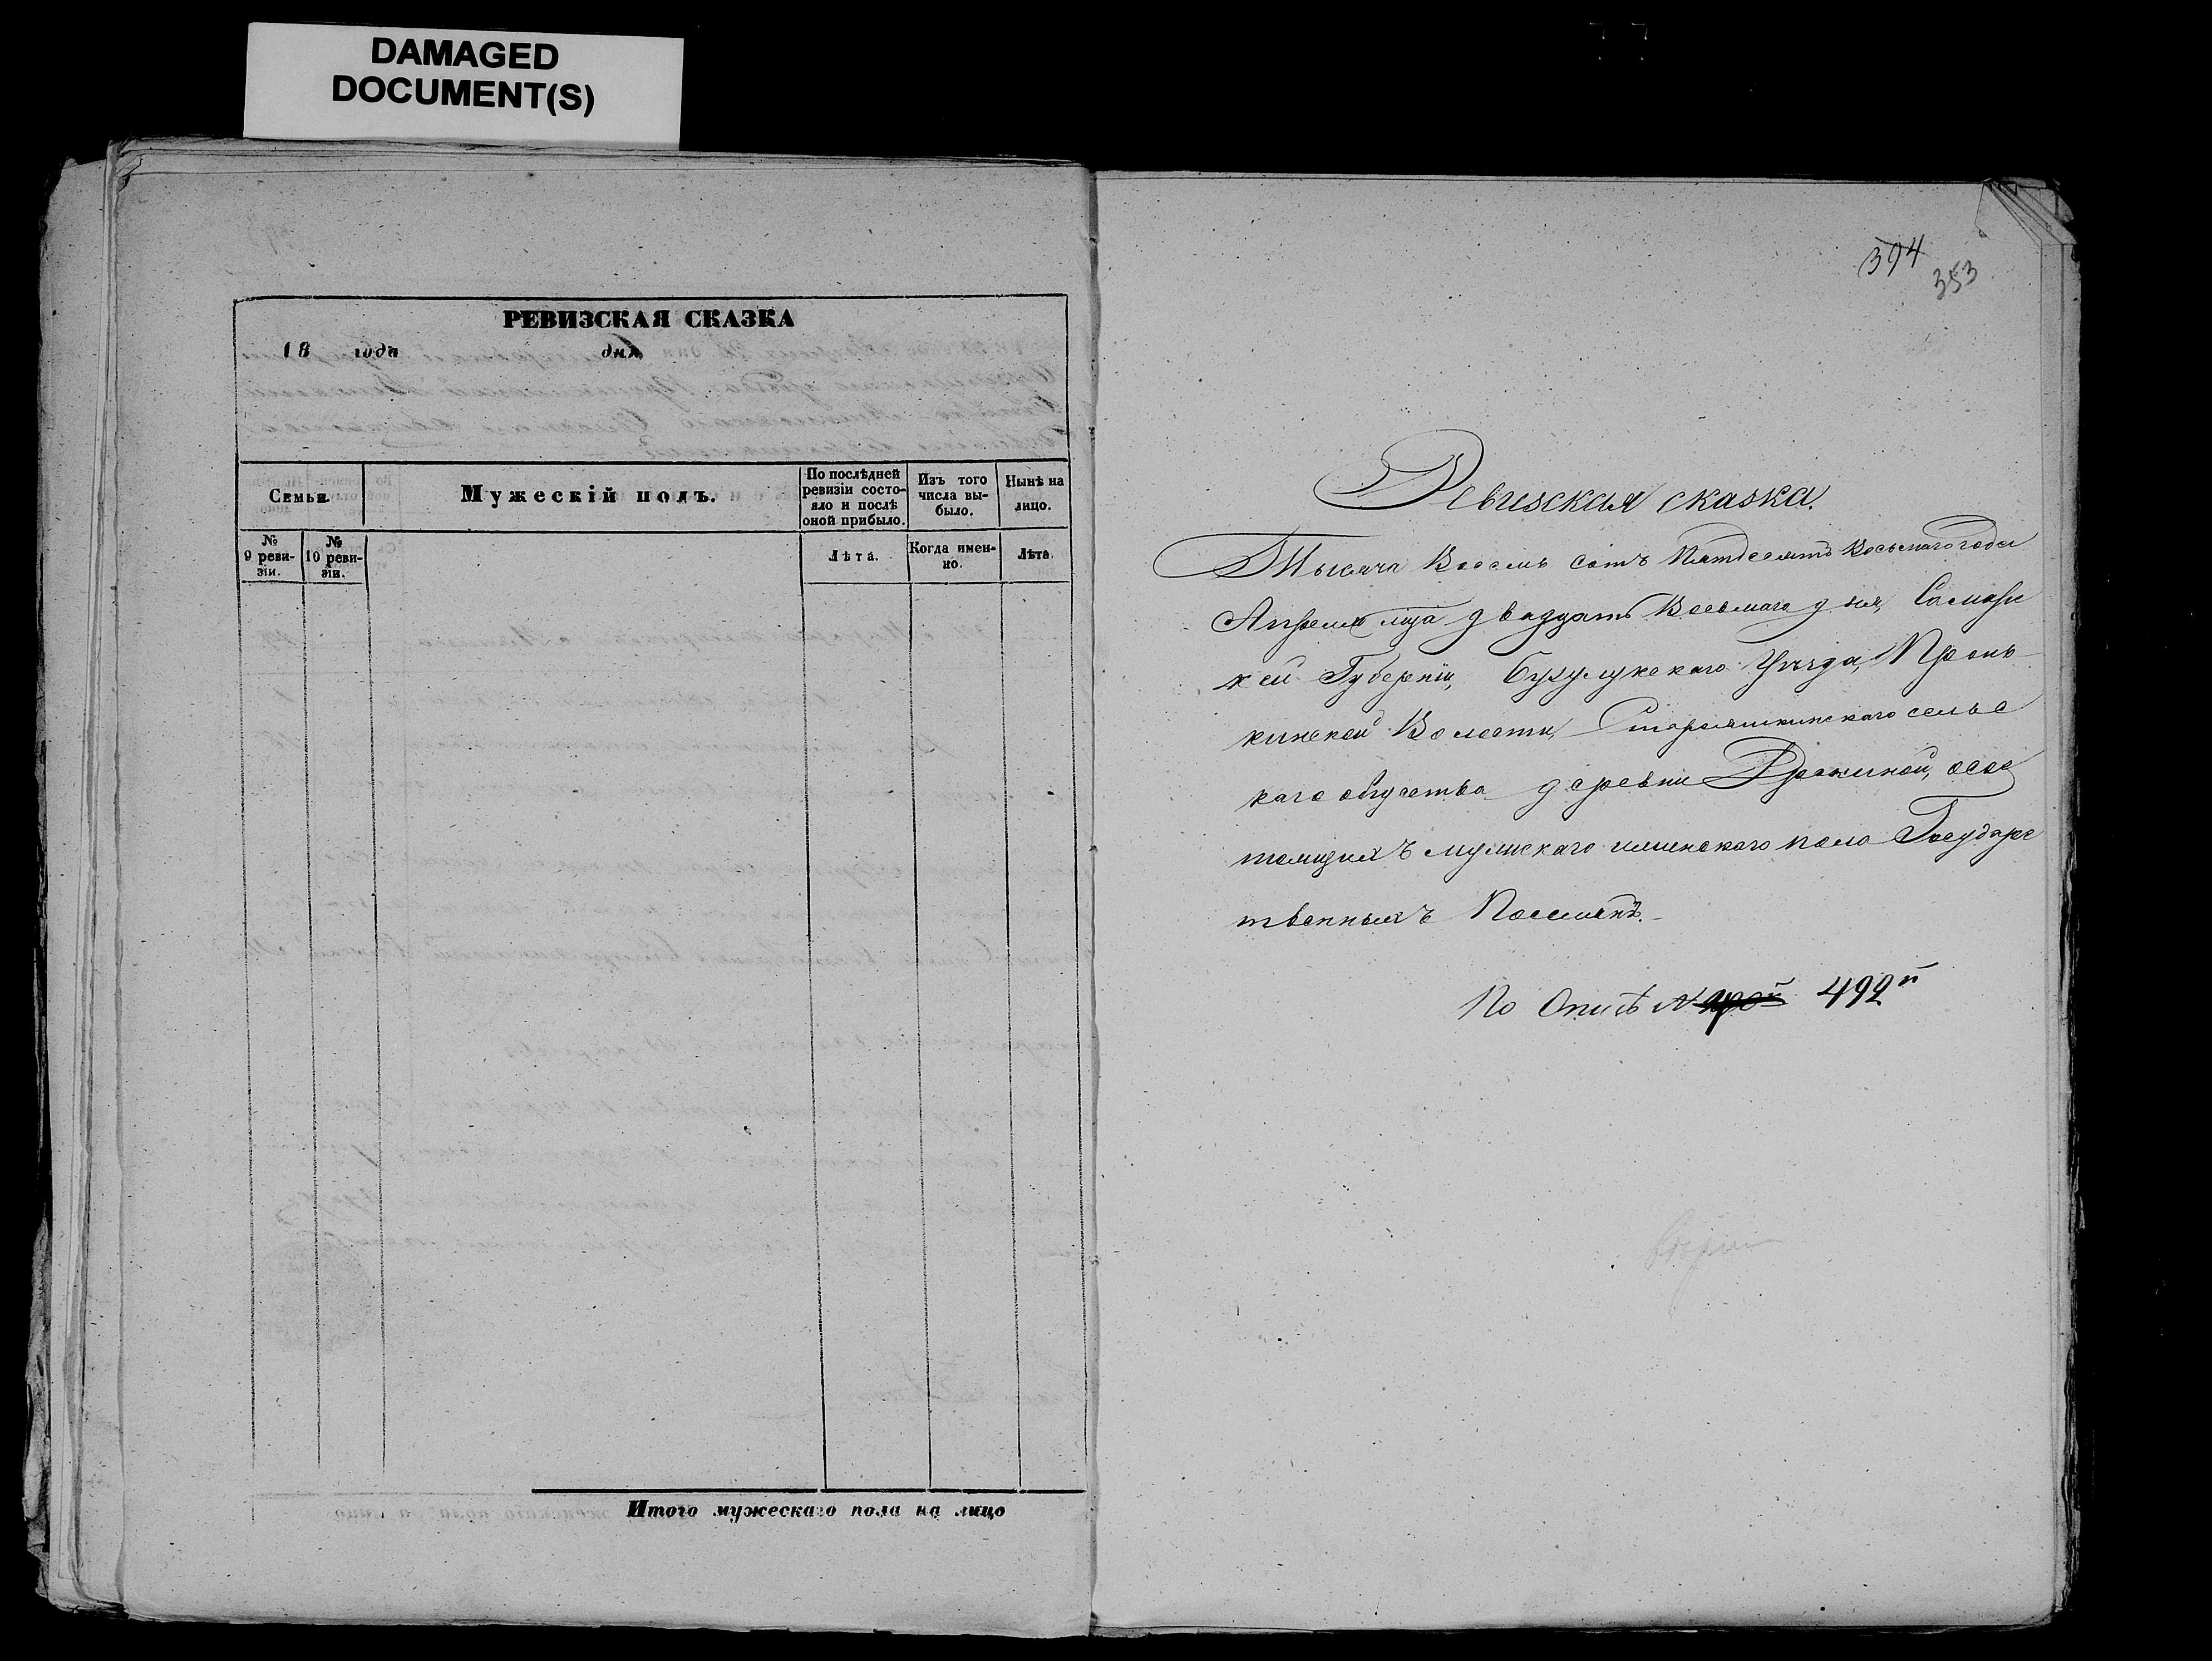 DAMAGED
DOCUMENT(S)
РЕВИЗСКАЯ СКАЗКА
18 года дня
Семьи. Мужескій полъ. По послѣдней ревизіи состояло и послѣ оной прибыло. Изъ того числа выбыло. Нынѣ на лицо.
№ 9 ревизіи. № 10 ревизіи. Лѣта. Когда именно. Лѣта.
Итого мужескаго пола на лицо
394
353
Ревизская сказка.
Тысяча Восемь сотъ Пятдесятъ Восьмаго года
Апреля мца двадцать Восьмаго дня, Самарс
кей Губерніи, Бузулукскаго Уѣзда, Пронь
кинской Волости, Старояшкинскаго сельс
каго общества деревни состо
ящихъ мужскаго иженскаго пола Государс
твенныхъ Поселянъ.
По Описѣ № 492й